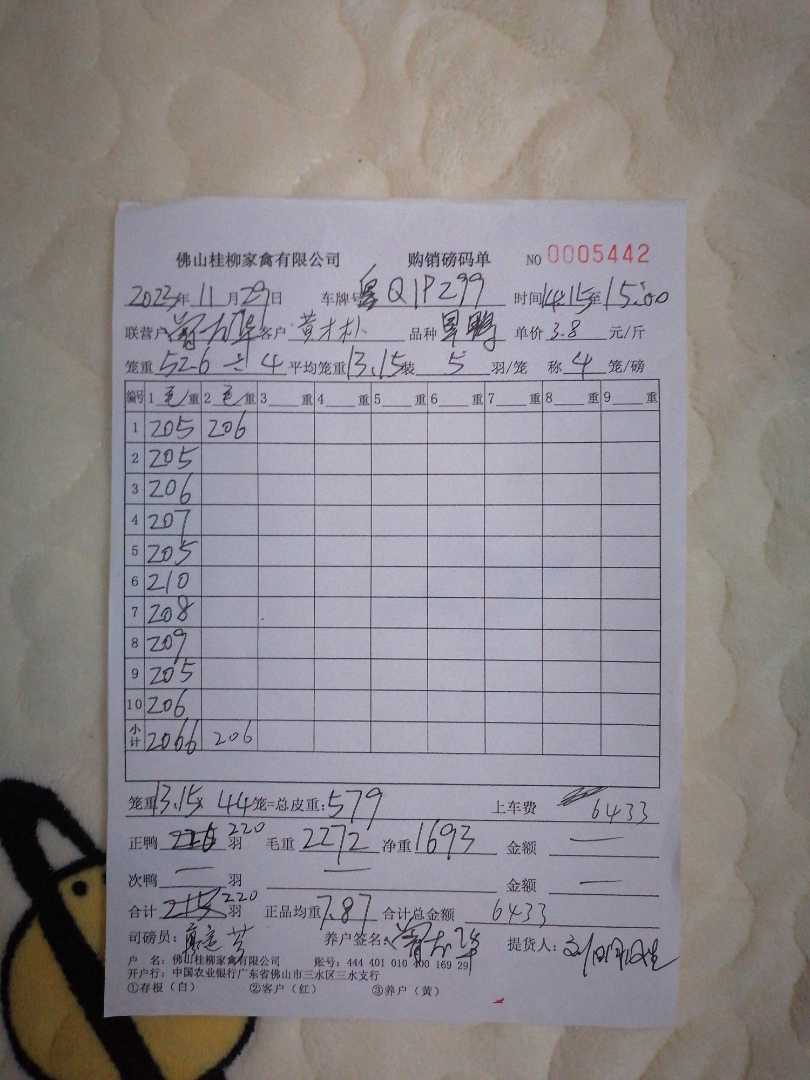 佛山桂柳家禽有限公司 购销磅码单 NO 0005442
2023年11月29日 车牌号粤Q1P299 时间14:15至15:00
联营户 客户黄才朴 品种旱鸭 单价3.8元/斤
笼重52.6÷4平均笼重13.15装5羽/笼 称4笼/磅
编号 1毛重 2毛重 3重 4重 5重 6重 7重 8重 9重
1 205 206
2 205
3 206
4 207
5 205
6 210
7 208
8 209
9 205
10 206
小计 2066 206
笼重13.15x44笼=总皮重:579 上车费 6433
正鸭220羽 毛重2272净重1693 金额—
次鸭—羽 — 金额—
合计215 220羽 正品均重7.87合计总金额6433
司磅员: 养户签名: 提货人:
户 名:佛山桂柳家禽有限公司 账号:444 401 010 400 169 29
开户行:中国农业银行广东省佛山市三水区三水支行
①存根(白) ②客户(红) ③养户(黄)